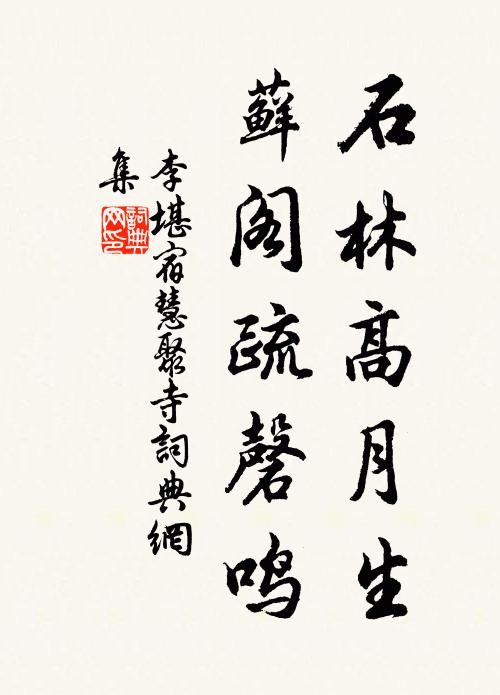 石林高月生
蘚阁疏磬鸣
李堪宿慧聚寺詞典網
集
詞典网印